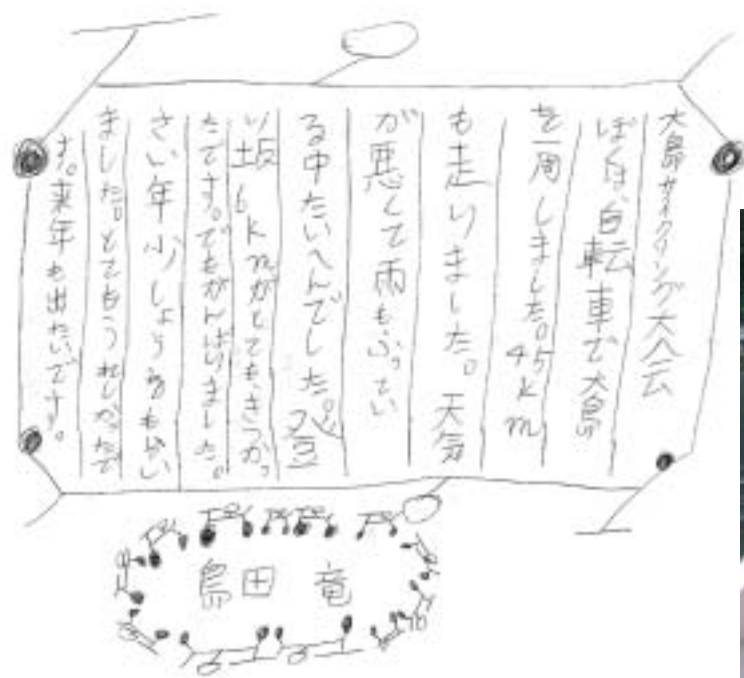 大島サイクリング大会
ぼくは、自転車で大島
を一周しました。45km
も走りました。天気
が悪くて雨もふってい
る中たいへんでした。登
り坂6kmがとてもきつかっ
たです。でもがんばりました。
さい年少しょうをもらい
ました。とてもうれしかったで
す。来年も出たいです。
島田 竜